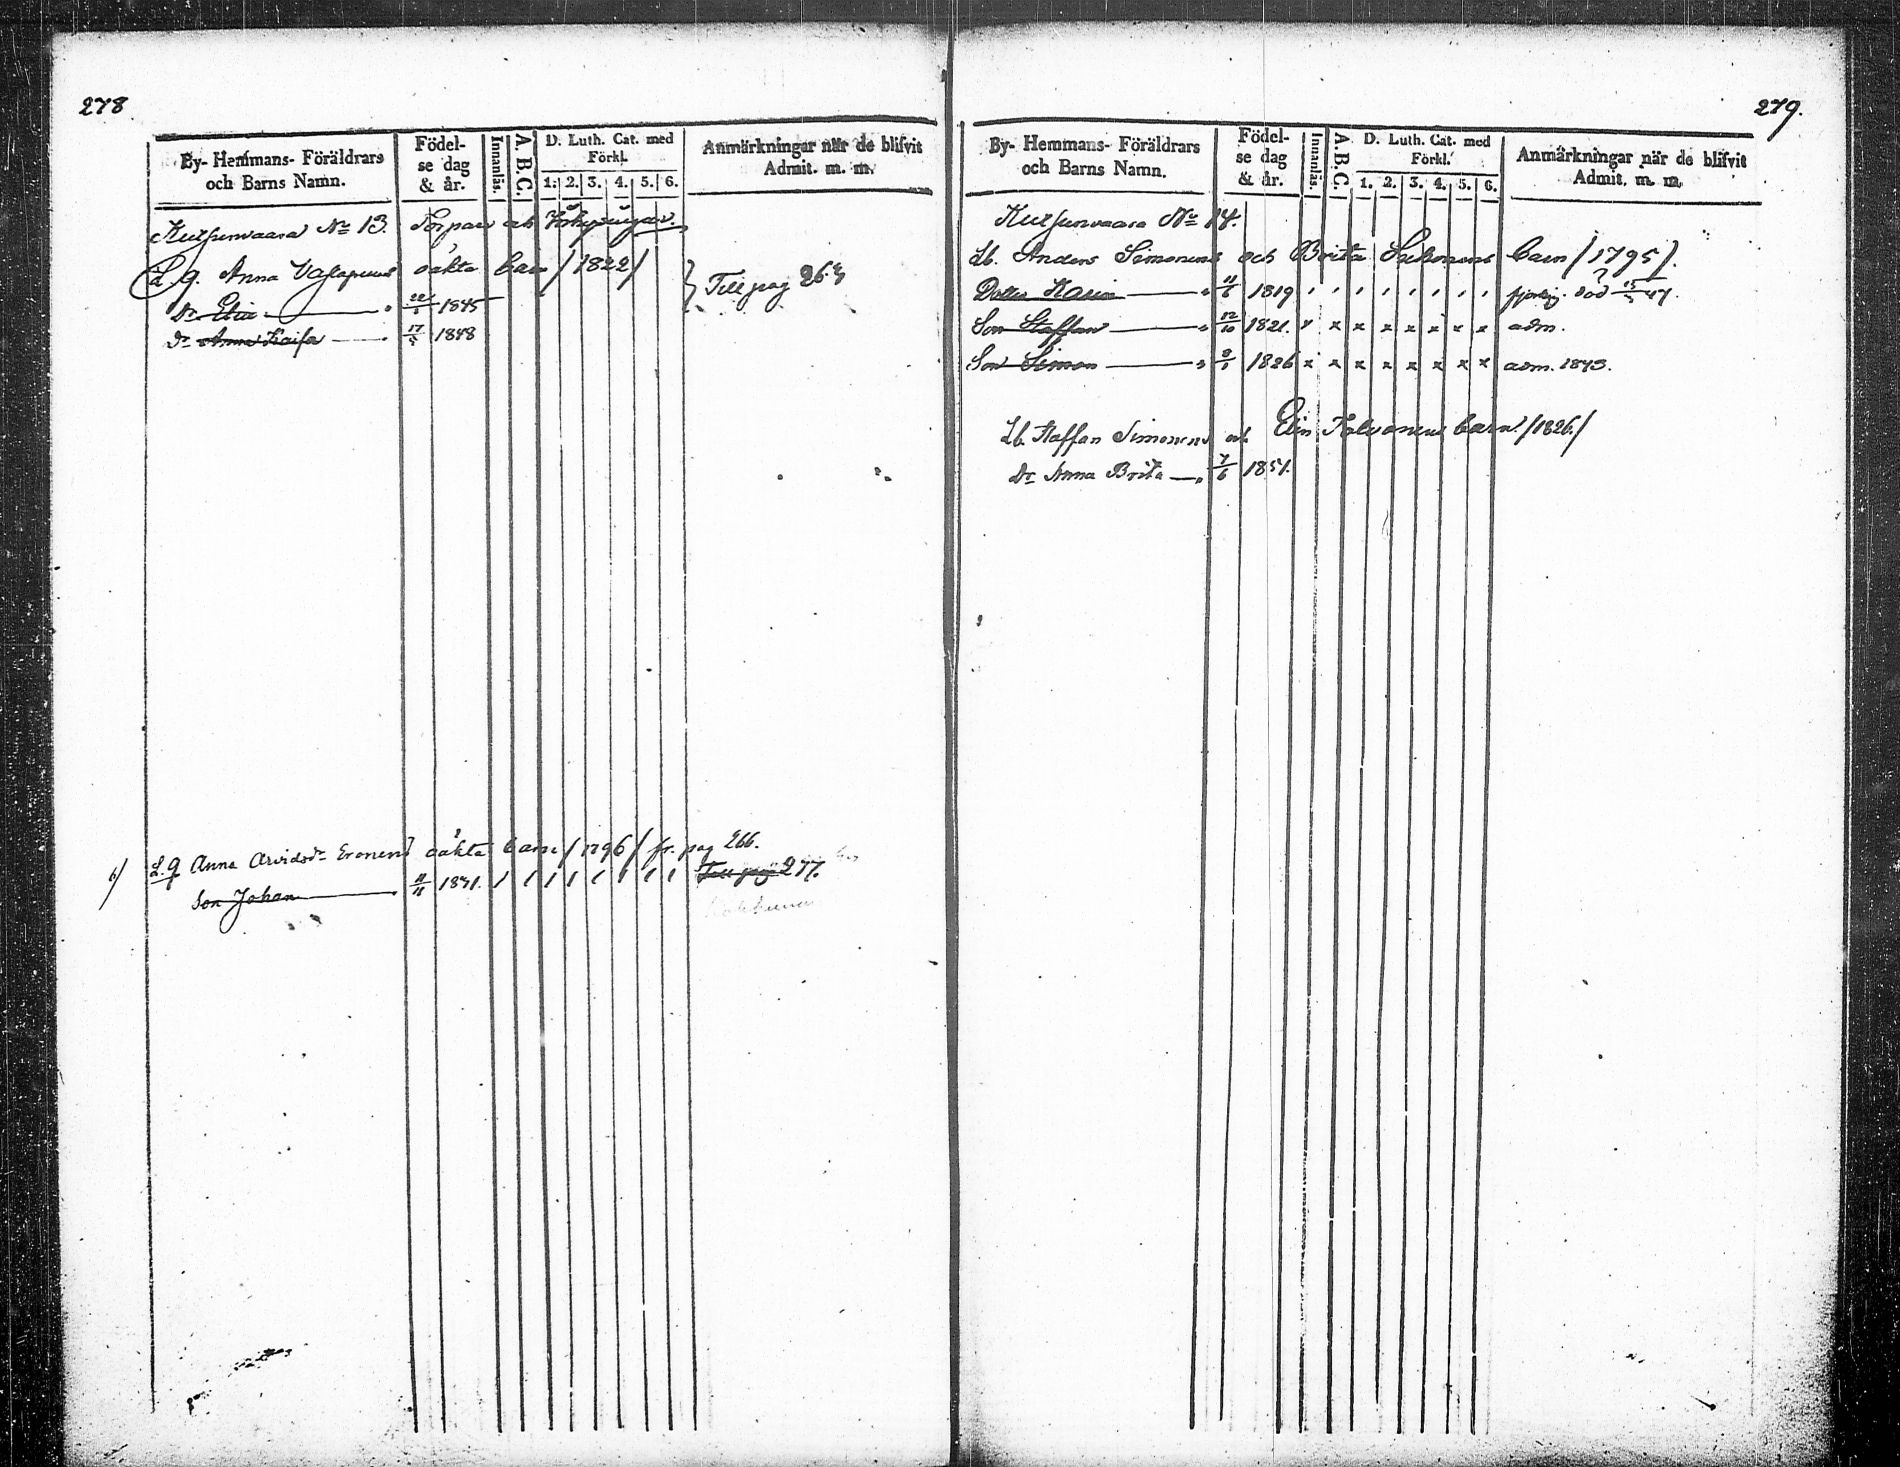 278
By- Hemmans- Föräldrars
och Barns Namn.
Födel-
se dag
& år.
Innanläs.
A. B. C.
D. Luth. Cat. med
Förkl.
1. 2. 3. 4. 5. 6.
Anmärkningar när de blifvit
Admit. m. m.
Kutsunvaara No 13. Torpare och
L. q. Anna oäkta barn /1822/
Dr Elin 22/5 1845
Dr Anna Kaisa 17/5 1848
Till pag
6/ L. q Anna Arvidsdr Eronens oäkta barn /1796/ fr. pag 266.
Son Johan 11/11 1831. / / / / / / / / Till pag 277.
279.
By- Hemmans- Föräldrars
och Barns Namn.
Födel-
se dag
& år.
Innanläs.
A. B. C.
D. Luth. Cat. med
Förkl.
1. 2. 3. 4. 5. 6.
Anmärkningar när de blifvit
Admit. m. m.
Kutsunvaara No 14.
Lb. Anders Simonens och Brita barn /1795/.
Dotter Karin 11/6 1819 död 47.
Son Staffan 12/10 1821. x x x x x x x x adm.
Son Simon 1826 x x x x x x x x adm. 1843.
Lb. Staffan Simonens och Elin barn /1826./
Dr Anna Brita 7/6 1851.